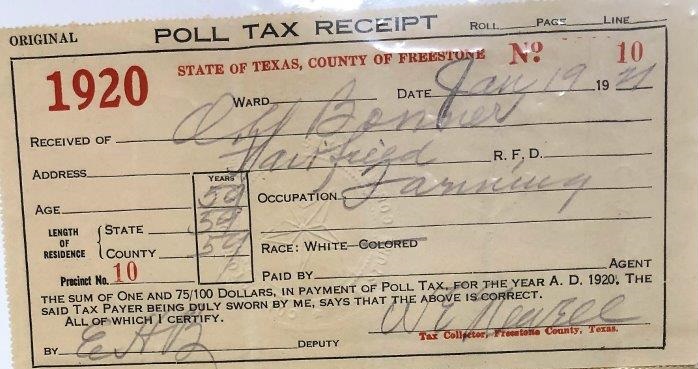 ORIGINAL POLL TAX RECEIPT ROLL PAGE LINE
1920 STATE OF TEXAS, COUNTY OF FREESTONE No. 10
WARD DATE Jan 19 1921
RECEIVED OF Bonner
ADDRESS Fairfield R. F. D.
YEARS
AGE 59 OCCUPATION Farming
LENGTH OF RESIDENCE { STATE 59
COUNTY 59 RACE: WHITE—COLORED
Precinct No. 10 PAID BY AGENT
THE SUM OF ONE AND 75/100 DOLLARS, IN PAYMENT OF POLL TAX, FOR THE YEAR A. D. 1920. THE
SAID TAX PAYER BEING DULY SWORN BY ME, SAYS THAT THE ABOVE IS CORRECT.
ALL OF WHICH I CERTIFY.
Tax Collector, Freestone County, Texas.
BY E A B DEPUTY